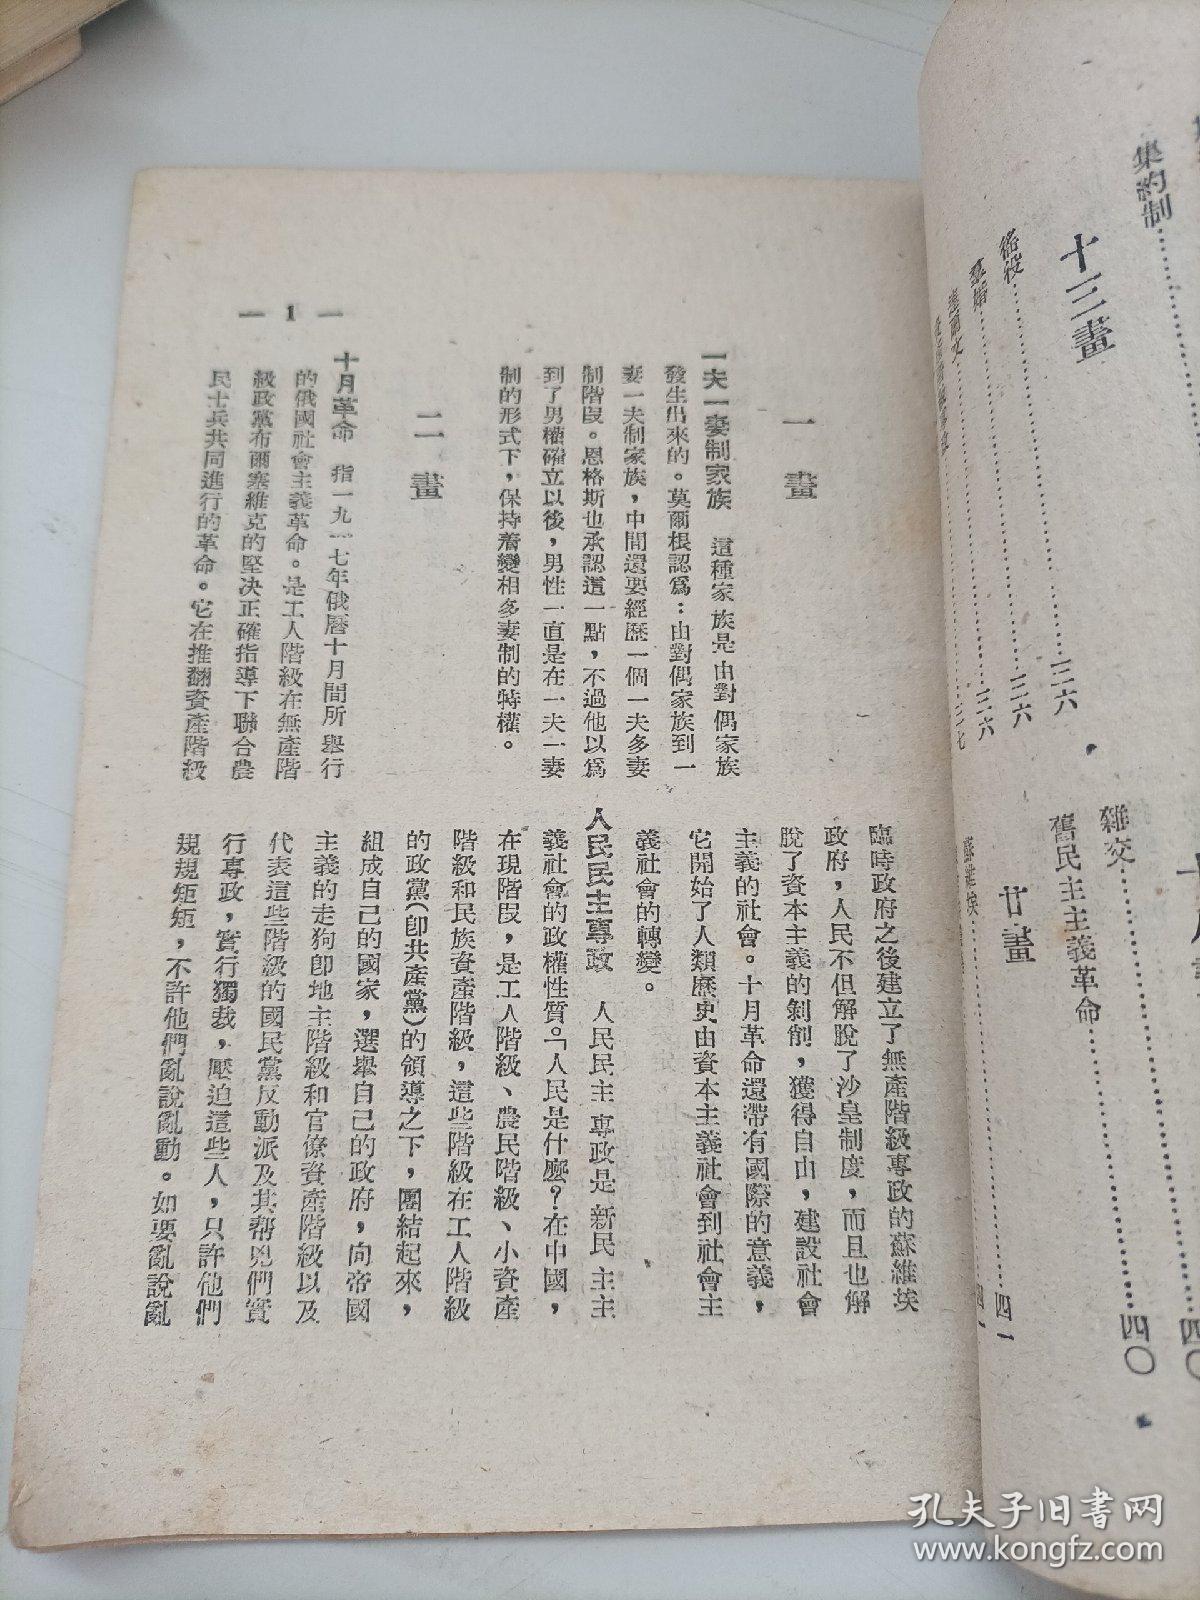 集約制⋯⋯
十三畫
徭役⋯⋯三六
羣婚⋯⋯三六
⋯⋯三六
⋯⋯三七
雜交⋯⋯四〇
舊民主主義革命⋯⋯四〇
廿畫
蘇維埃⋯⋯四一
一畫
一夫一妻制家族　這種家族是由對偶家族
發生出來的。莫爾根認爲：由對偶家族到一
妻一夫制家族，中間還要經歷一個一夫多妻
制階段。恩格斯也承認這一點，不過他以爲
到了男權確立以後，男性一直是在一夫一妻
制的形式下，保持着變相多妻制的特權。
二畫
十月革命　指一九一七年俄曆十月間所舉行
的俄國社會主義革命。是工人階級在無產階
級政黨布爾塞維克的堅决正確指導下聯合農
民士兵共同進行的革命。它在推翻資產階級
臨時政府之後建立了無產階級專政的蘇維埃
政府，人民不但解脫了沙皇制度，而且也解
脫了資本主義的剝削，獲得自由，建設社會
主義的社會。十月革命還帶有國際的意義，
它開始了人類歷史由資本主義社會到社會主
義社會的轉變。
人民民主專政　人民民主專政是新民主主
義社會的政權性質。「人民是什麼？在中國，
在現階段，是工人階級、農民階級、小資產
階級和民族資產階級，這些階級在工人階級
的政黨（卽共產黨）的領導之下，團結起來，
組成自己的國家，選舉自己的政府，向帝國
主義的走狗卽地主階級和官僚資產階級以及
代表這些階級的國民黨反動派及其幫兇們實
行專政，實行獨裁，壓迫這些人，只許他們
規規矩矩，不許他們亂說亂動。如要亂說亂
— 1 —
孔夫子旧书网
www.kongfz.com